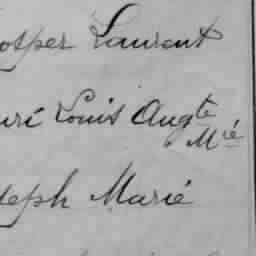 osper Laurent
uri Louis Augte
Mié
seph Marié